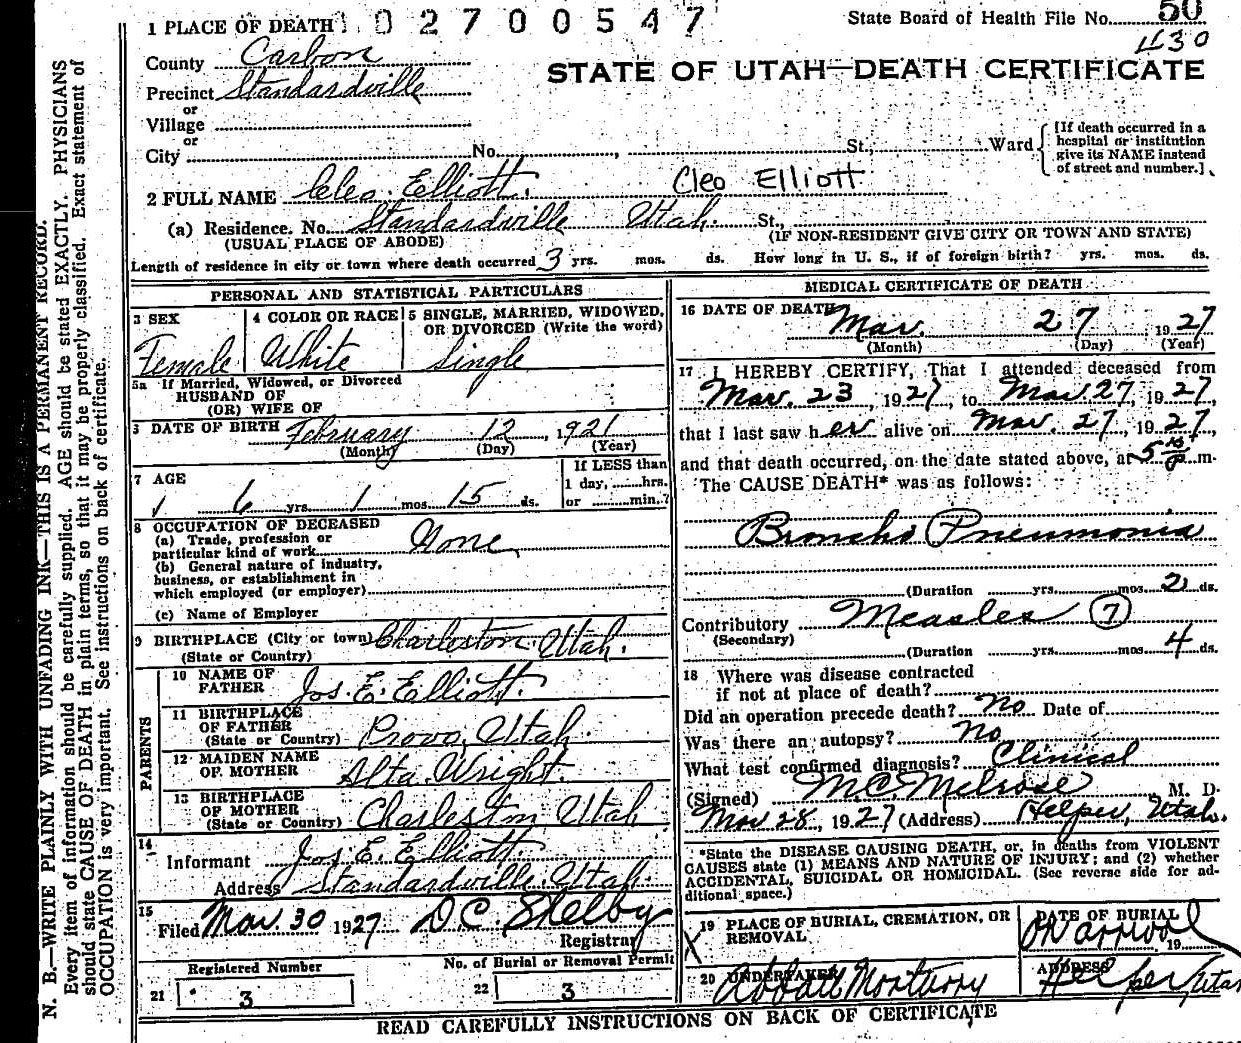 1 PLACE OF DEATH 1 0 2 7 0 0 5 4 7
State Board of Health File No. 50
430
County Carbon
STATE OF UTAH—DEATH CERTIFICATE
Precinct Standardville
or
Village
or
City No. , St., Ward
[If death occurred in a hospital or institution give its NAME instead of street and number.]
2 FULL NAME Cleo Elliott. Cleo Elliott
(a) Residence. No. Standardville Utah. St.,
(USUAL PLACE OF ABODE) (IF NON-RESIDENT GIVE CITY OR TOWN AND STATE)
Length of residence in city or town where death occurred 3 yrs. mos. ds. How long in U. S., if of foreign birth? yrs. mos. ds.
PERSONAL AND STATISTICAL PARTICULARS
3 SEX
Female
4 COLOR OR RACE
White
5 SINGLE, MARRIED, WIDOWED, OR DIVORCED (Write the word)
Single
5a If Married, Widowed, or Divorced
HUSBAND OF
(OR) WIFE OF
3 DATE OF BIRTH February 12, 1921
(Month) (Day) (Year)
7 AGE
6 yrs. 1 mos. 15 ds.
If LESS than
1 day, hrs.
or min.?
8 OCCUPATION OF DECEASED
(a) Trade, profession or
particular kind of work None
(b) General nature of industry,
business, or establishment in
which employed (or employer)
(c) Name of Employer
9 BIRTHPLACE (City or town) Charleston, Utah.
(State or Country)
PARENTS
10 NAME OF
FATHER Jos. E. Elliott.
11 BIRTHPLACE
OF FATHER
(State or Country) Provo, Utah.
12 MAIDEN NAME
OF MOTHER Alta Wright.
13 BIRTHPLACE
OF MOTHER
(State or Country) Charleston, Utah
14
Informant Jos. E. Elliott
Address Standardville, Utah.
15
Filed Mar. 30 1927 D.C. Shelby
Registrar
Registered Number
21 3
No. of Burial or Removal Permit
22 3
MEDICAL CERTIFICATE OF DEATH
16 DATE OF DEATH Mar. 27 1927
(Month) (Day) (Year)
17 I HEREBY CERTIFY, That I attended deceased from
Mar. 23, 1927, to Mar. 27, 1927,
that I last saw her alive on Mar. 27, 1927,
and that death occurred, on the date stated above, at 5 p m.
The CAUSE DEATH* was as follows:
Broncho Pneumonia
(Duration yrs. mos. 2 ds.
Contributory Measles 7
(Secondary)
(Duration yrs. mos. 4 ds.
18 Where was disease contracted
if not at place of death?
Did an operation precede death? No Date of
Was there an autopsy? No
What test confirmed diagnosis? Clinical
(Signed) MC Melrose, M. D.
Mar 28, 1927 (Address) Helper, Utah.
*State the DISEASE CAUSING DEATH, or, in deaths from VIOLENT
CAUSES state (1) MEANS AND NATURE OF INJURY; and (2) whether
ACCIDENTAL, SUICIDAL OR HOMICIDAL. (See reverse side for ad-
ditional space.)
19 PLACE OF BURIAL, CREMATION, OR
REMOVAL
X
DATE OF BURIAL
On arrival 19
20 UNDERTAKER
Mortuary
ADDRESS
Helper Utah
READ CAREFULLY INSTRUCTIONS ON BACK OF CERTIFICATE
N. B.—WRITE PLAINLY WITH UNFADING INK—THIS IS A PERMANENT RECORD.
Every item of information should be carefully supplied. AGE should be stated EXACTLY. PHYSICIANS
should state CAUSE OF DEATH in plain terms, so that it may be properly classified. Exact statement of
OCCUPATION is very important. See instructions on back of certificate.